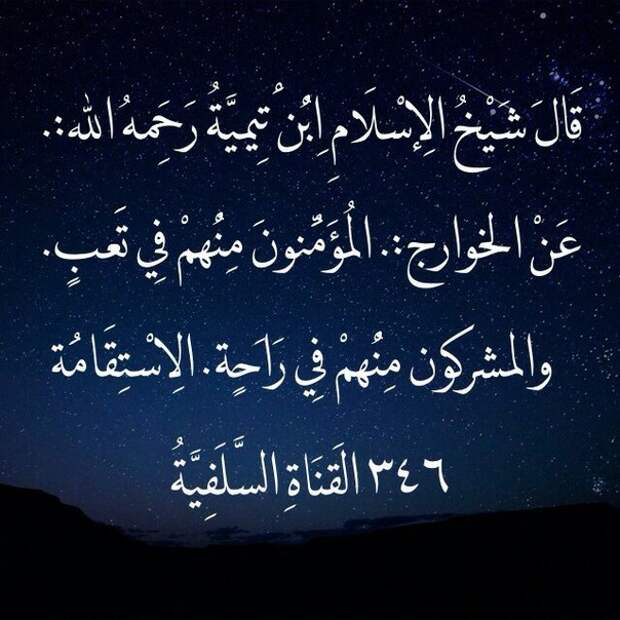 قَالَ شَيْخُ الِإسْلَامِ اِبْن تِيمِيَّةُ رَحِمهُ الله:.
عَنْ الخوارج:. المُؤَمِّنونَ مِنُهمْ فِي تَعَبٍ.
والمشركون مِنُهمْ فِي رَاَحِة. الِاسْتِقَامُة
٣٤٦ القَنَاةِ السَّلَفِيَّةُ